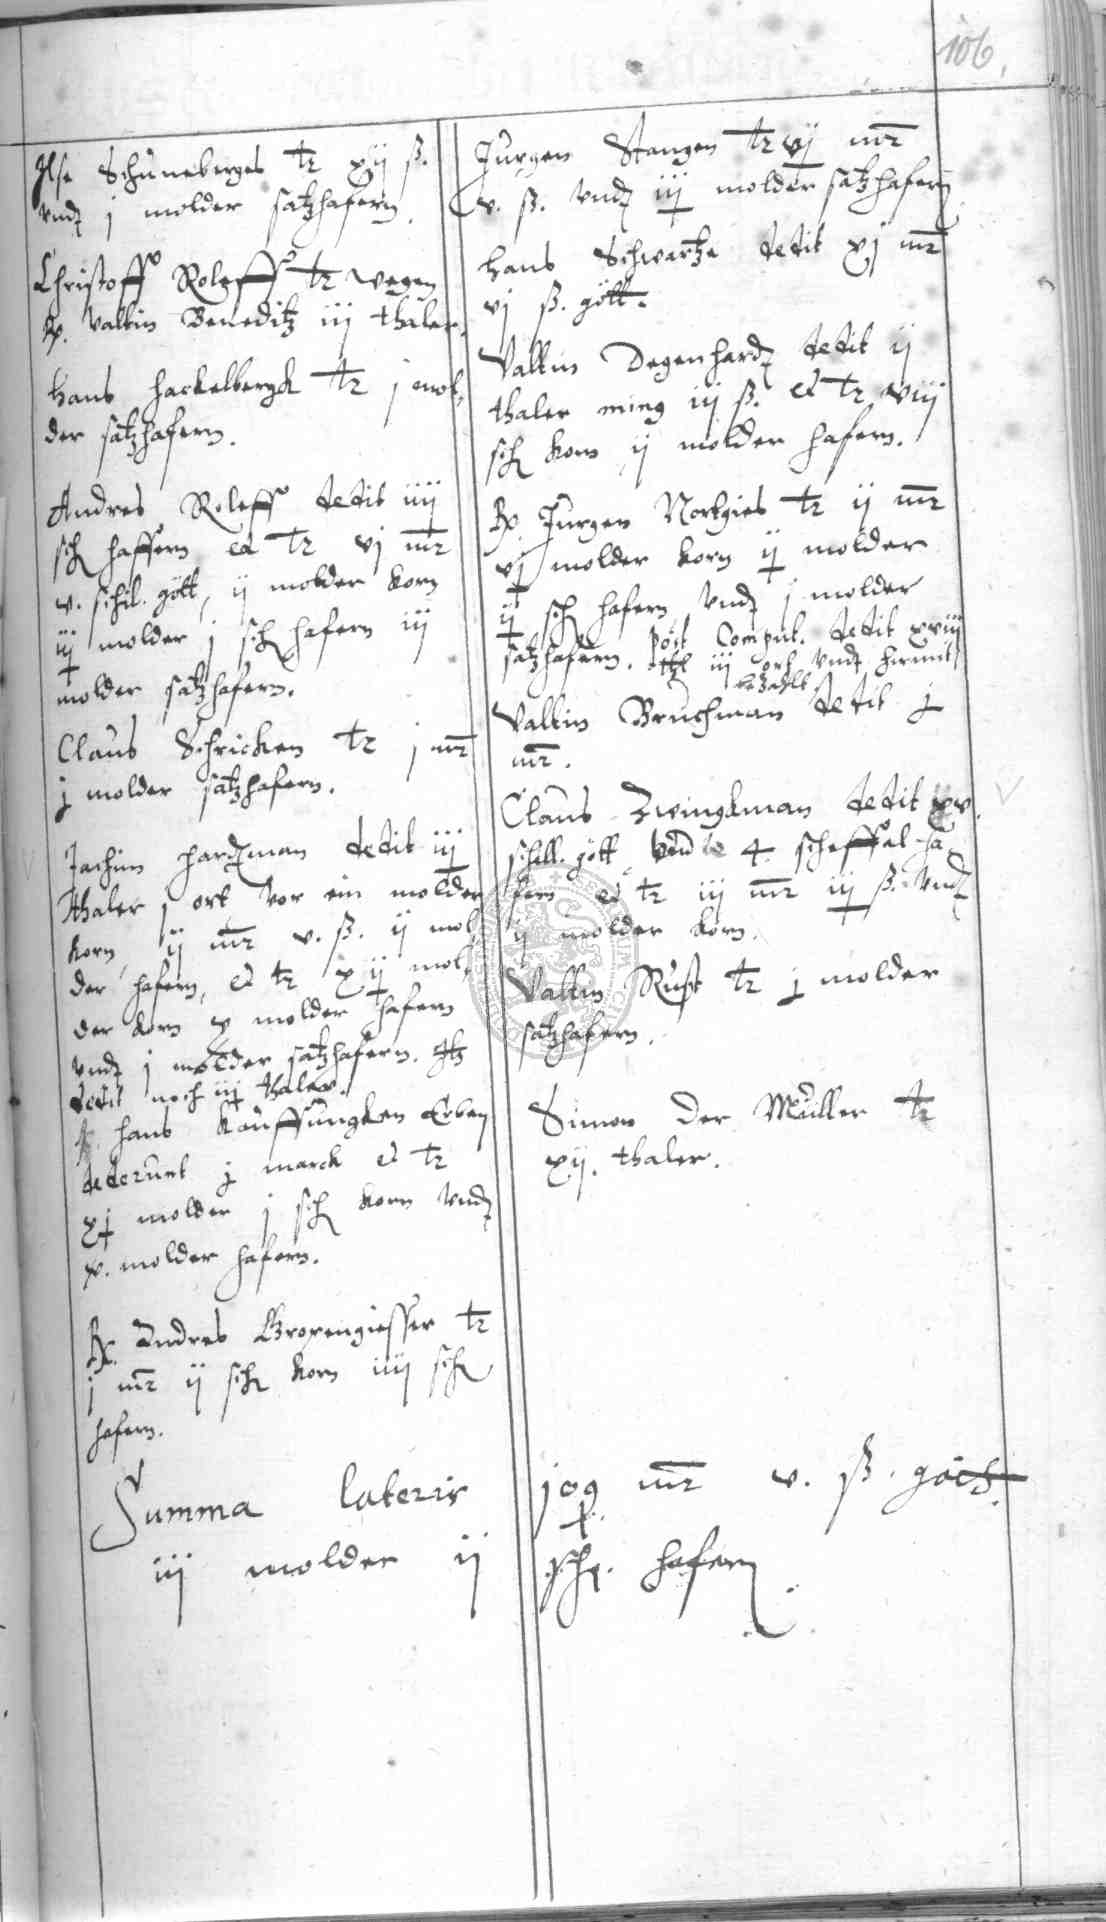 106.
Ilse Schuneberges tz xij ß.
vnd j molder satzhafern.
Christoff Roleff tz wegen
Valtin Beneditz iij thaler.
Hans Hackelbergk tz j mol,
der satzhafern.
Andres Roleff dedit iiij
sch haffern et tz vj mr
v. schil. gött, ij molder korn
iij molder j sch hafern iij
molder satzhafern.
Claus Schricken tz j mr
j molder satzhafern.
Jachim Hardman dedit iij
thaler j ort vor ein molder
korn, ij mr v. ß. ij mol,
der hafern, et tz xij mol,
der korn x molder hafern
vnd j molder satzhafern.
dedit noch iij thaler.
Hans Kauffungken Erben
dederunt j marck et tz
xj molder j sch korn vnd
x. molder hafern.
Andres Gropengiesser tz
j mr ij sch korn iiij sch
hafern.
Jurgen Stangen tz vij mr
v. ß. vnd iij molder satzhafern
Hans Schwartze dedit xj mr
vj ß. gött.
Valtin Degenhard dedit ij
thaler ming iij ß. et tz viij
sch korn ij molder hafern.
Jurgen Nortgies tz ij mr
vj molder korn ij molder
ij sch hafern vnd j molder
satzhafern. post Comput. dedit xviij
iij orh vnd hirmit
bezahlt
Valtin Bruchman dedit j
mr.
Claus Zwingkman dedit xv.
schill. gött 4. scheffel ha,
fern et tz iij mr iij ß. vnd
ij molder korn.
Valtin Rust tz j molder
satzhafern.
Simon der Müller tz
xij. thaler.
Summa lateris j09 mr v. ß. göth.
iij molder ij sch. hafern.